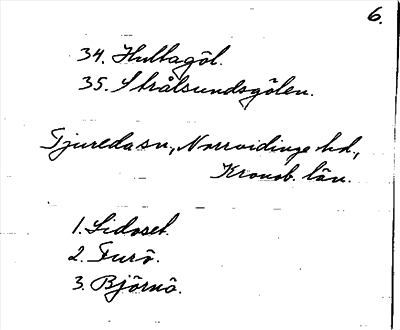 6.
34. Hultagöl.
35. Strålsundsgölen.
Tjureda sn., Norrvidinge hd.,
Kronob. län.
1. Lidoset.
2. Furö.
3. Björnö.